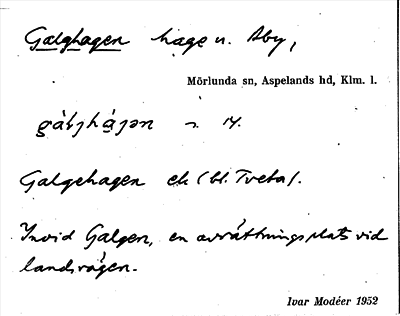 Galghagen hage u. Åby,
Mörlunda sn, Aspelands hd, Klm. l.
Galgehagen ek (bl. Tveta).
Invid Galgen, en avrättningsplats vid
landsvägen.
Ivar Modéer 1952